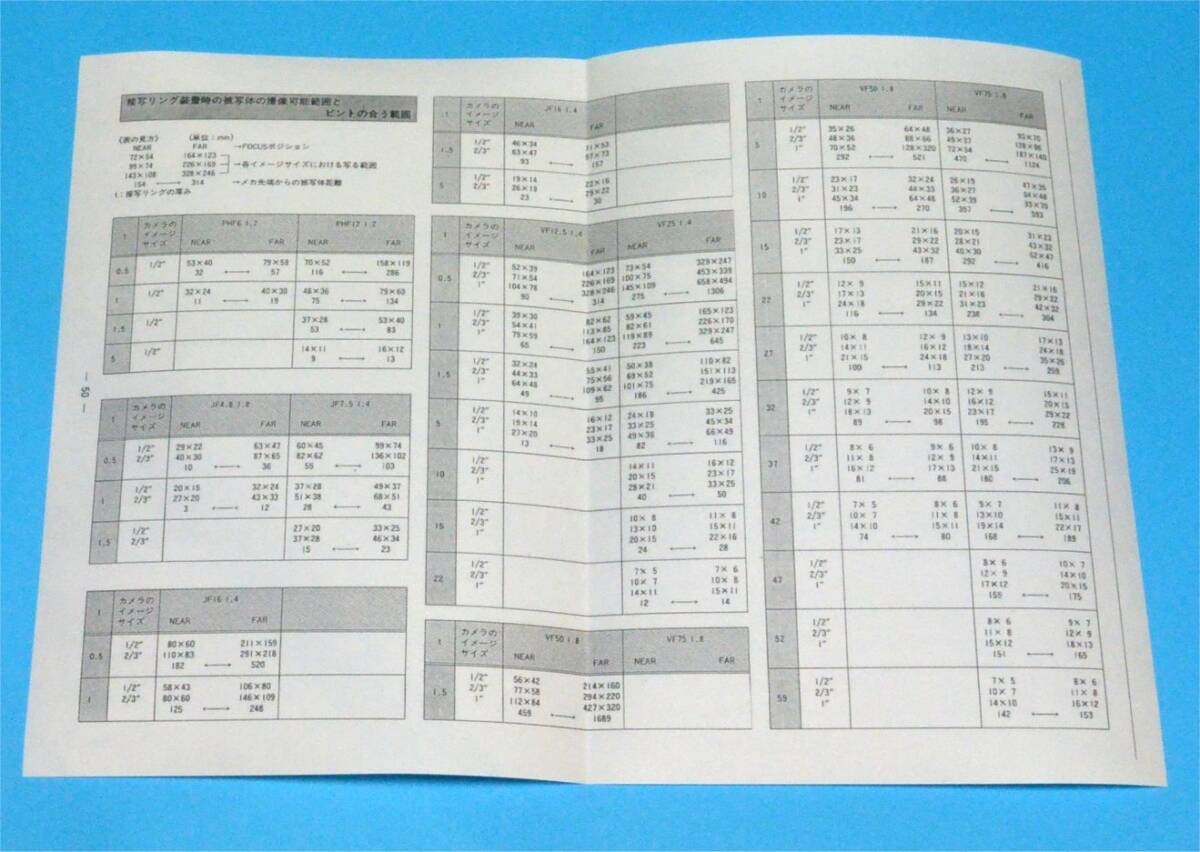 接写リング装着時の被写体の撮像可能範囲と
ピントの合う範囲
《表の見方》 (単位:mm)
NEAR FAR →FOCUSポジション
72×54 164×123
99×74 226×169 →各イメージサイズにおける写る範囲
143×108 328×246
154 ←→ 314 →メカ先端からの被写体距離
t:接写リングの厚み
t カメラのイメージサイズ PHF6 1.2 PHF12 1.2
NEAR FAR NEAR FAR
0.5 1/2" 53×40 79×59 70×52 158×119
32 ←→ 57 116 ←→ 286
1 1/2" 32×24 40×30 48×36 79×60
11 ←→ 19 75 ←→ 134
1.5 1/2" 37×28 53×40
53 ←→ 83
5 1/2" 14×11 16×12
9 ←→ 13
— 50 —
t カメラのイメージサイズ JF4.8 1.8 JF7.5 1.4
NEAR FAR NEAR FAR
0.5 1/2" 29×22 63×47 60×45 99×74
2/3" 40×30 87×65 82×62 136×102
10 ←→ 36 55 ←→ 103
1 1/2" 20×15 32×24 37×28 49×37
2/3" 27×20 43×33 51×38 68×51
3 ←→ 12 28 ←→ 43
1.5 1/2" 27×20 33×25
2/3" 37×28 46×34
15 ←→ 23
t カメラのイメージサイズ JF16 1.4
NEAR FAR
0.5 1/2" 80×60 211×159
2/3" 110×83 291×218
182 ←→ 520
1 1/2" 58×43 106×80
2/3" 80×60 146×109
125 ←→ 248
t カメラのイメージサイズ JF16 1.4
NEAR FAR
1.5 1/2" 46×34 71×53
2/3" 63×47 97×73
93 ←→ 157
5 1/2" 19×14 22×16
2/3" 26×19 29×22
23 ←→ 30
t カメラのイメージサイズ VF12.5 1.4 VF25 1.4
NEAR FAR NEAR FAR
0.5 1/2" 52×39 164×123 73×54 329×247
2/3" 71×54 226×169 100×75 453×339
1" 104×78 328×246 145×109 658×494
90 ←→ 314 275 ←→ 1306
1 1/2" 39×30 82×62 59×45 165×123
2/3" 54×41 113×85 82×61 226×170
1" 79×59 164×123 119×89 329×247
65 ←→ 150 223 ←→ 645
1.5 1/2" 32×24 55×41 50×38 110×82
2/3" 44×33 75×56 69×52 151×113
1" 64×48 109×82 101×75 219×165
49 ←→ 95 186 ←→ 425
5 1/2" 14×10 16×12 24×18 33×25
2/3" 19×14 23×17 33×25 45×34
1" 27×20 33×25 49×36 66×49
13 ←→ 18 82 ←→ 116
10 1/2" 14×11 16×12
2/3" 20×15 23×17
1" 28×21 33×25
40 ←→ 50
15 1/2" 10× 8 11× 8
2/3" 13×10 15×11
1" 20×15 22×16
24 ←→ 28
22 1/2" 7× 5 7× 6
2/3" 10× 7 10× 8
1" 14×11 15×11
12 ←→ 14
t カメラのイメージサイズ VF50 1.8 VF75 1.8
NEAR FAR NEAR FAR
1.5 1/2" 56×42 214×160
2/3" 77×58 294×220
1" 112×84 427×320
459 ←→ 1689
t カメラのイメージサイズ VF50 1.8 VF75 1.8
NEAR FAR NEAR FAR
5 1/2" 35×26 64×48 36×27 93×70
2/3" 48×36 88×66 49×37 128×96
1" 70×52 128×320 72×54 187×140
292 ←→ 521 470 ←→ 1124
10 1/2" 23×17 32×24 26×19 47×35
2/3" 31×23 44×33 36×27 64×48
1" 45×34 64×48 52×39 93×70
196 ←→ 270 357 ←→ 593
15 1/2" 17×13 21×16 20×15 31×23
2/3" 23×17 29×22 28×21 43×32
1" 33×25 43×32 40×30 62×47
150 ←→ 187 292 ←→ 416
22 1/2" 12× 9 15×11 15×12 21×16
2/3" 17×13 20×15 21×16 29×22
1" 24×18 29×22 31×23 42×32
116 ←→ 134 238 ←→ 304
27 1/2" 10× 8 12× 9 13×10 17×13
2/3" 14×11 16×12 18×14 24×18
1" 21×15 24×18 27×20 35×26
100 ←→ 113 213 ←→ 259
32 1/2" 9× 7 10× 8 12× 9 15×11
2/3" 12× 9 14×10 16×12 20×15
1" 18×13 20×15 23×17 29×22
89 ←→ 98 195 ←→ 228
37 1/2" 8× 6 9× 6 10× 8 13× 9
2/3" 11× 8 12× 9 14×11 17×13
1" 16×12 17×13 21×15 25×19
81 ←→ 88 180 ←→ 206
42 1/2" 7× 5 8× 6 9× 7 11× 8
2/3" 10× 7 11× 8 13×10 15×11
1" 14×10 15×11 19×14 22×17
74 ←→ 80 168 ←→ 189
47 1/2" 8× 6 10× 7
2/3" 12× 9 14×10
1" 17×12 20×15
159 ←→ 175
52 1/2" 8× 6 9× 7
2/3" 11× 8 12× 9
1" 15×12 18×13
151 ←→ 165
59 1/2" 7× 5 8× 6
2/3" 10× 7 11× 8
1" 14×10 16×12
142 ←→ 153